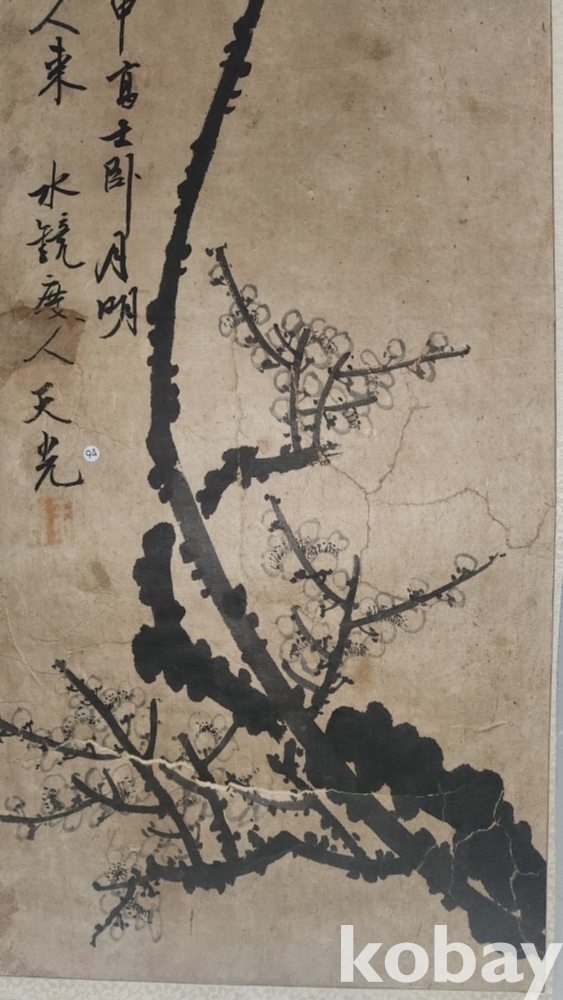 中高士卧月明
人来
水镜度人天光
94
kobay